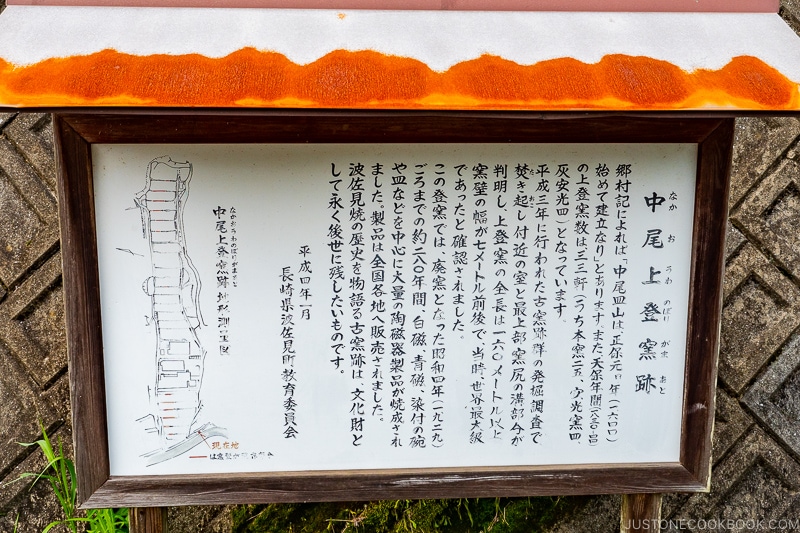 中尾上登窯跡
なか お うわ のぼり がま あと
郷村記によれば、「中尾皿山は、正保元
始めて建立なり」とあります。また、天保年間
の上登窯数は三三軒(うち本窯二五、
灰安光四)となっています。
平成三年に行われた古窯跡群の発掘調査で
焚き起し付近の室と最上部窯尻の溝部分が
判明し、上登窯の全長は一六〇メートル以上
窯壁の幅が七メートル前後で、当時、世界最大級
であったと確認されました。
この登窯では、廃窯となった昭和四年(一九二九)
ごろまでの約二八〇年間、白磁、青磁、染付の碗
や皿などを中心に大量の陶磁器製品が焼成され
ました。製品は全国各地へ販売されました。
波佐見焼の歴史を物語る古窯跡は、文化財と
して永く後世に残したいものです。
平成四年一月
長崎県波佐見町教育委員会
なかおうわのぼりがまあと
中尾上登窯跡地形測量図
現在地
JUSTONECOOKBOOK.COM